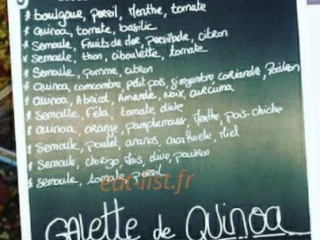 * boulgour, persil, Menthe, tomate
* Quinoa, tomate, basilic
* Semoule, Fruits de mer, Persillade, citron
* Semoule, thon, ciboulette, tomate
* Semoule, pomme, citron
* Quinoa, concombre, petit pois, gingembre coriandre,
* Quinoa, Abricot, Amande, Noix, curcuma
* Semoule, Feta, tomate, olive
* Quinoa, orange, pamplemousse, Menthe, Pois-chiche
* Semoule, Poulet, ananas, cacahuete, Miel
* Semoule, chorizo, Maïs, olive, poivron
* Semoule, tomate, persil
eat-list.fr
GALETTE de QUINOA